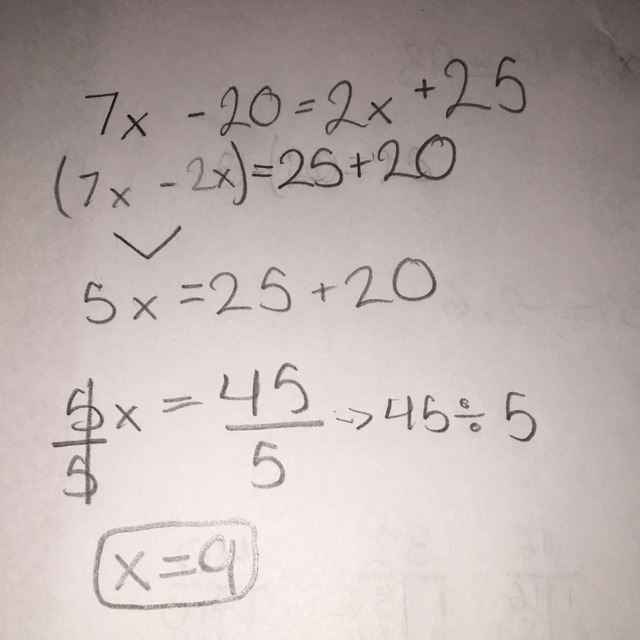 7x - 20 = 2x + 25
(7x - 2x) = 25 + 20
5x = 25 + 20
5/5 x = 45/5 -> 45 ÷ 5
x = 9